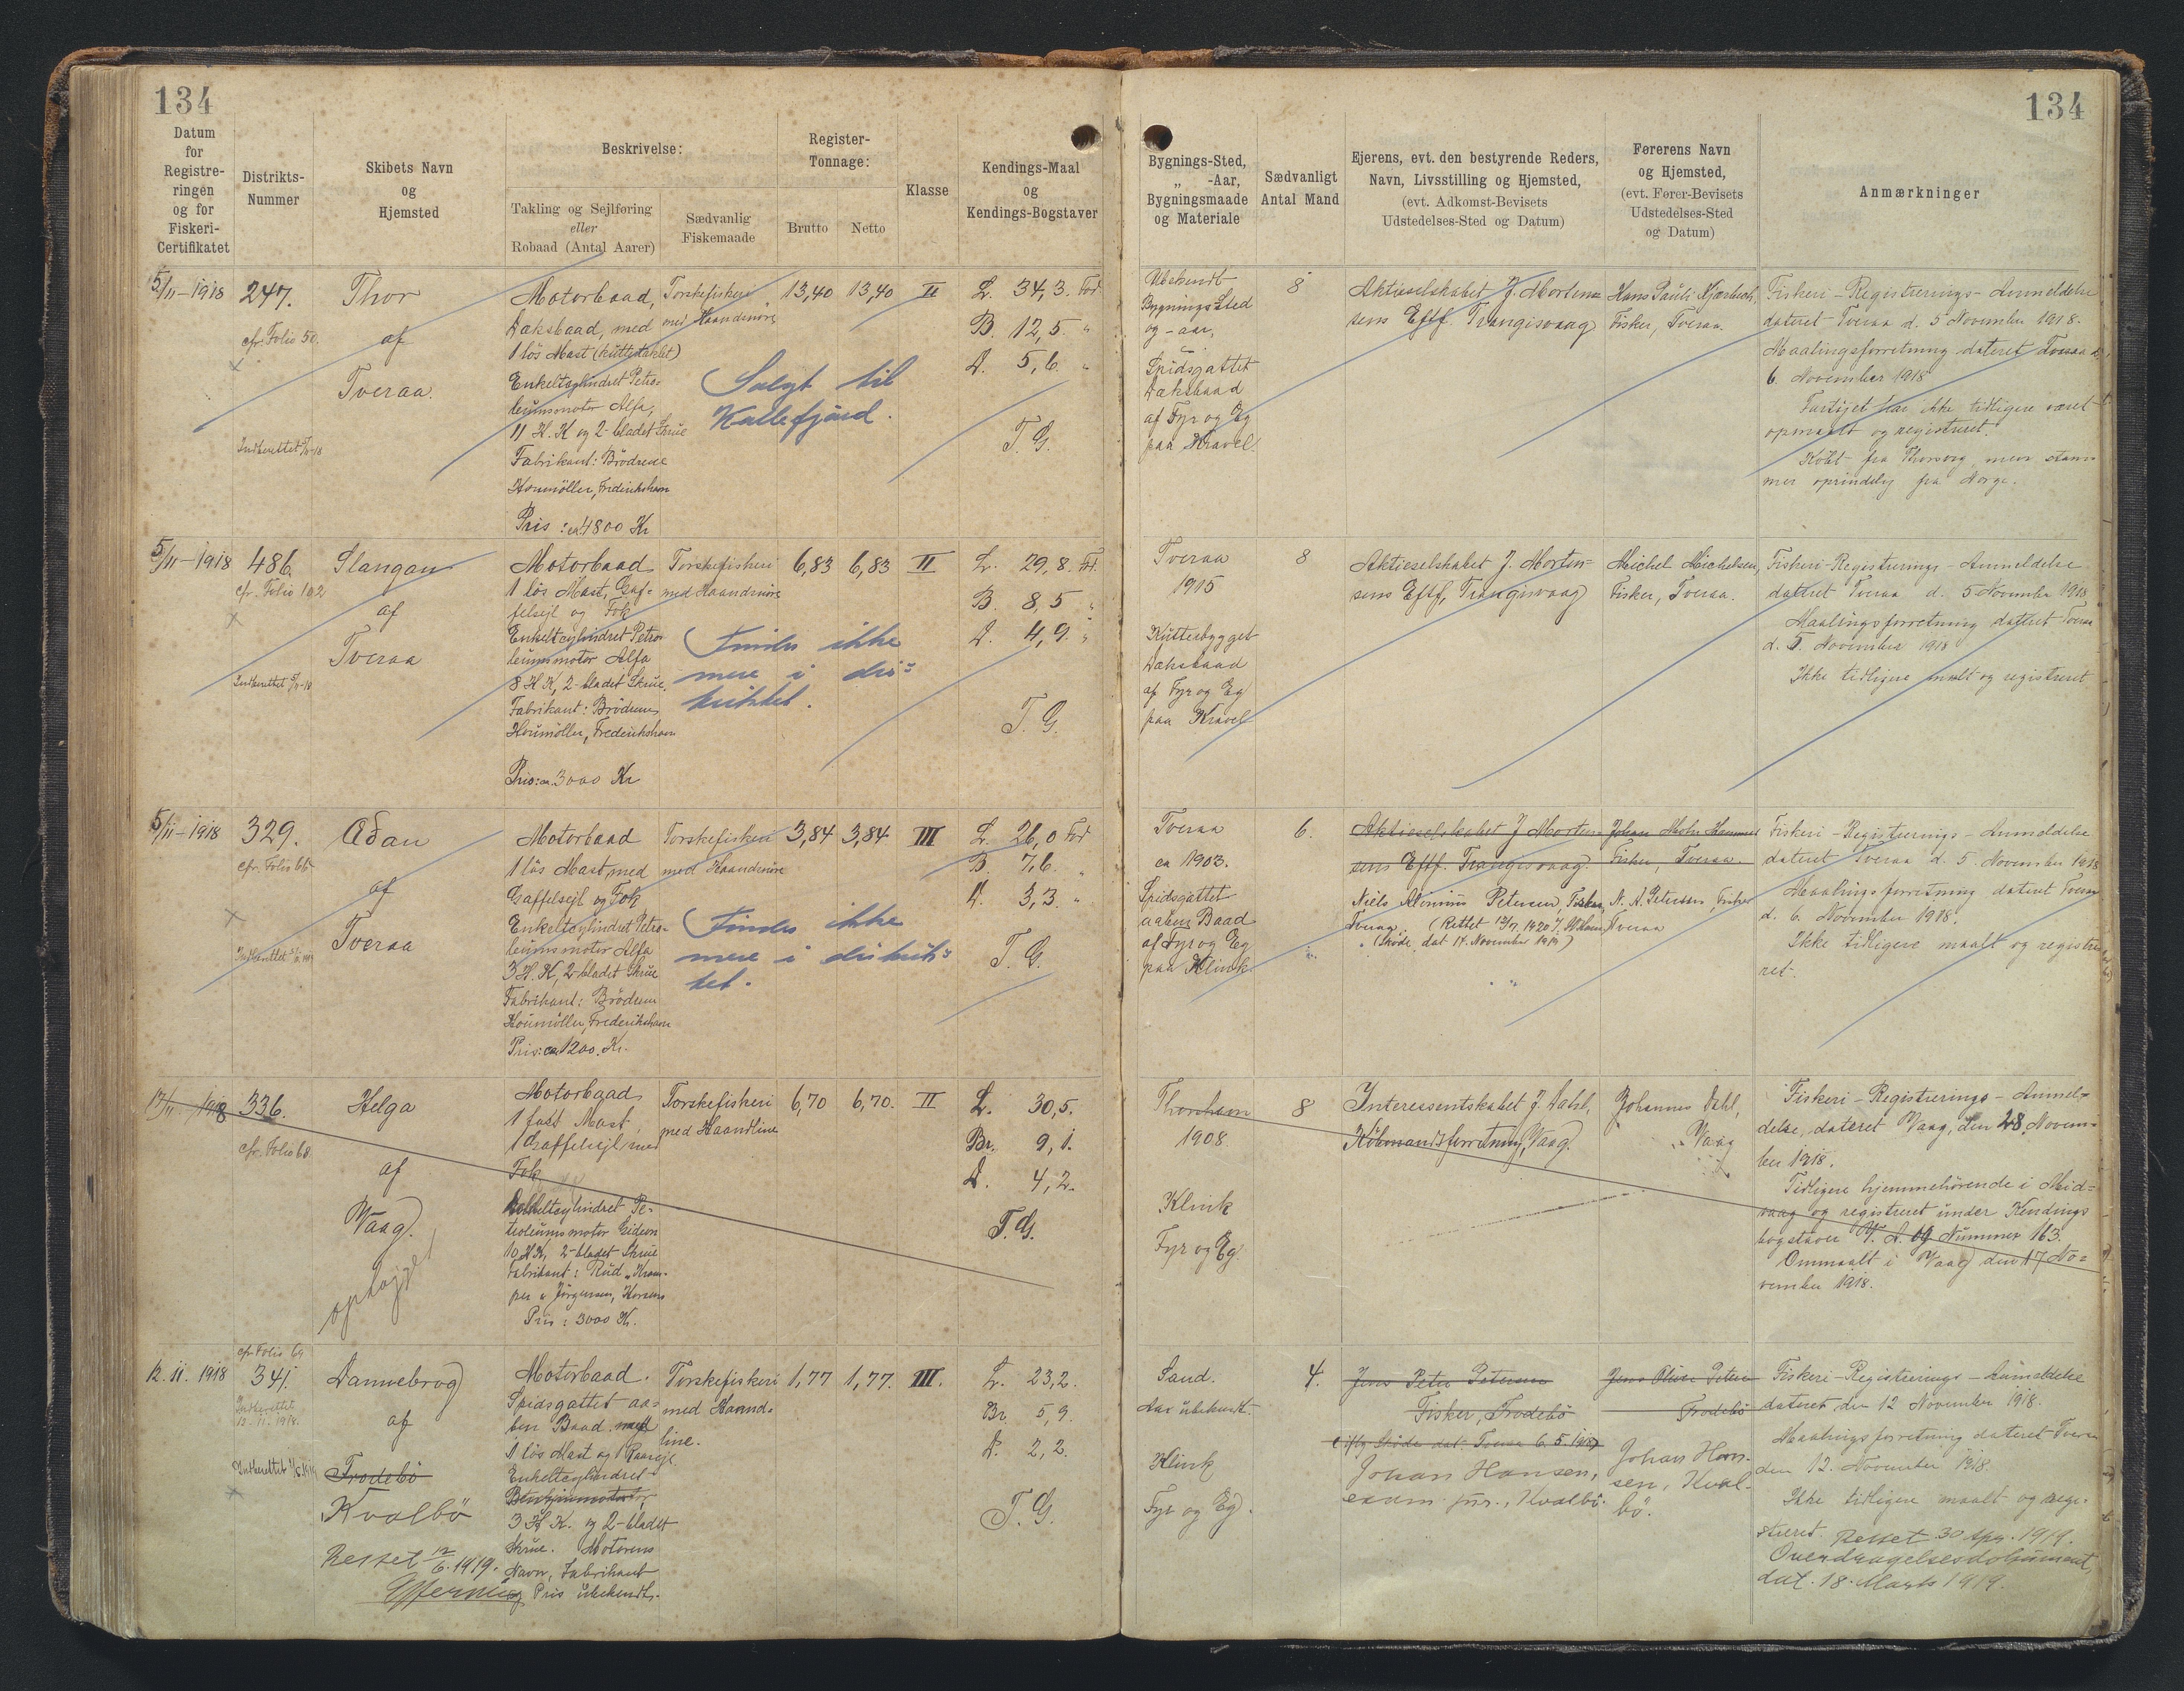 134
134
Datum
for
Registre-
ringen
og for
Fiskeri-
Certifikatet
Distrikts-
Nummer
Skibets Navn
og
Hjemsted
Beskrivelse:
Takling og Sejlføring
eller
Robaad (Antal Aarer)
Sædvanlig
Fiskemaade
Register-
Tonnage:
Brutto
Netto
Klasse
Kendings-Maal
og
Kendings-Bogstaver
Bygnings-Sted,
„ -Aar,
Bygningsmaade
og Materiale
Sædvanligt
Antal Mand
Ejerens, evt. den bestyrende Reders,
Navn, Livsstilling og Hjemsted,
(evt. Adkomst-Bevisets
Udstedelses-Sted og Datum)
Førerens Navn
og Hjemsted,
(evt. Fører-Bevisets
Udstedelses-Sted
og Datum)
Anmærkninger
5/11-1918
247.
cfr. Folio 50.
Indberettet
Thor
af
Tveraa.
Motorbaad,
Dæksbaad, med
1 lös Mast (kuttertaklet)
Enkeltcylindret Petro-
leumsmotor Alfa,
11 H.K og 2-bladet Skrue
Fabrikant: Brödrene
Houmöller, Frederikshavn
Pris: ca 4800 Kr
Torskefiskeri
med Haandsnøre
Solgt til
13,40
13,40
II
L. 34,3. Fod
B. 12,5. "
D. 5,6. "
T. G.
Ubekendt
Bygnings Sted
og -aar,
Spidsgattet
Dæksbaad
af Fyr og Eg
paa Kravel.
8
Aktieselskabet J. Morten-
sens Eftf. Trangisvaag
Hans Pauli
Fisker, Tveraa.
Fiskeri-Registrerings-Anmeldelse
dateret Tveraa d. 5 November 1918.
Maalingsforretning dateret Tveraa d.
6. November 1918
Fartöjet har ikke tidligere været
opmaalt og registreret.
Köbt fra men stam-
mer oprindelig fra Norge.
5/11-1918
486.
cfr. Folio 102
Indberettet
Slangan
af
Tveraa
Motorbaad
1 lös Mast, Gaf-
felsejl og Fok
Enkeltcylindret Petro-
leumsmotor Alfa
8 H.K, 2-bladet Skrue.
Fabrikant: Brödrene
Houmöller, Frederikshavn
Pris: ca. 3000 Kr
Torskefiskeri
med Haandsnøre
Findes ikke
mere i dis-
triktet.
6,83
6,83
II
L. 29,8. Fd.
B. 8,5 "
D. 4,9. "
T. G.
Tveraa
1915
Kutterbygget
Dæksbaad
af Fyr og Eg
paa Kravel
8
Aktieselskabet J. Morten-
sens Eftf, Trangisvaag
Michel Michelsen,
Fisker, Tveraa.
Fiskeri-Registrerings-Anmeldelse
dateret Tveraa d. 5 November 1918
Maalingsforretning dateret Tveraa
d. 5. November 1918
Ikke tidligere maalt og registreret
5/11-1918
329.
cfr. Folio 66
Indberettet
Ædan
af
Tveraa
Motorbaad
1 lös Mast, med
Gaffelsejl og Fok
Enkeltcylindret Petro-
leumsmotor Alfa
3 H.K, 2-bladet Skrue
Fabrikant: Brödrene
Houmöller, Frederikshavn
Pris: ca 1200 Kr.
Torskefiskeri
med Haandsnøre
Findes ikke
mere i distrik-
tet.
3,84
3,84
III
L. 26,0 Fod
B. 7,6. "
D. 3,3. "
T. G.
Tveraa
ca 1903.
Spidsgattet
aaben Baad
af Fyr og Eg
paa Klink
6.
Aktieselskabet J Morten-
sens Eftf. Trangisvaag.
Niels Petersen, Fisker,
Tveraa.
(Skøde dat 14. November 1919)
Johan
Fisker, Tveraa.
N. A. Petersen, Fisker
Tveraa
Fiskeri-Registrerings-Anmeldelse
dateret Tveraa d. 5. November 1918
Maalingsforretning dateret Tveraa
d. 6. November 1918.
Ikke tidligere maalt og registre-
ret.
17/11 1918
336.
cfr. Folio 68
Helga
af
Vaag.
ophugget
Motorbaad
1 fast Mast,
1 Gaffelsejl med
Fok
cylindret Pe-
troleumsmotor Gideon
10 H.K, 2-bladet Skrue
Fabrikant: Rud. Kram-
per & Jörgensen, Horsens
Pris: 3000 Kr.
Torskefiskeri
med Haandline
6,70
6,70.
II
L. 30,5.
Br. 9,1.
D. 4,2.
T. G.
Thorshavn
1908.
Klink
Fyr og Eg
8
Interessentskabet J. Dahl,
Købmandsforretning, Vaag.
Johannes Dahl,
Vaag
Fiskeri-Registrerings-Anmel-
delse, dateret Vaag, den 28 Novem-
ber 1918.
Tidligere hjemmehörende i Mid-
vaag og registreret under Kendings
bogstaver V. A. og Nummer 163.
Ommaalt i Vaag den 17 No-
vember 1918.
12. 11. 1918
cfr. Folio 69
341.
Indberettet
12. 11. 1918.
Indberettet
Dannebrog
af
Frodebö
Kvalbö
Rettet 12/6. 1919.
Motorbaad.
Spidsgattet aa-
ben Baad med
1 lös Mast og 1 Raasejl.
Enkeltcylindret
3 H K. og 2-bladet
Skrue. Motorens
Navn, Fabrikant
og Pris ubekendt.
Torskefiskeri
med Haand-
line.
1,77
1,77.
III.
L. 23,2.
Br. 5,9.
D. 2,2.
T. G.
Sand.
Aar ubekendt.
Klink
Fyr og Eg.
4.
Jens Peter Petersen
Fisker, Frodebö
Johan Hansen,
exam. jur., Kvalbö.
Frodebö
Johan Han-
sen, Kval-
bö.
Fiskeri-Registrerings-Anmeldelse
dateret den 12 November 1918.
Maalingsforretning dateret Tveraa
den 12. November 1918.
Ikke tidligere maalt og regi-
streret. Rettet 30 Apr. 1919.
Overdragelsesdokument,
dat. 18. Marts 1919.